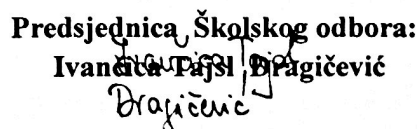 Predsjednica Školskog odbora:
Ivančica Tajsl Dragičević
Ivančica Tajsl
Dragičević